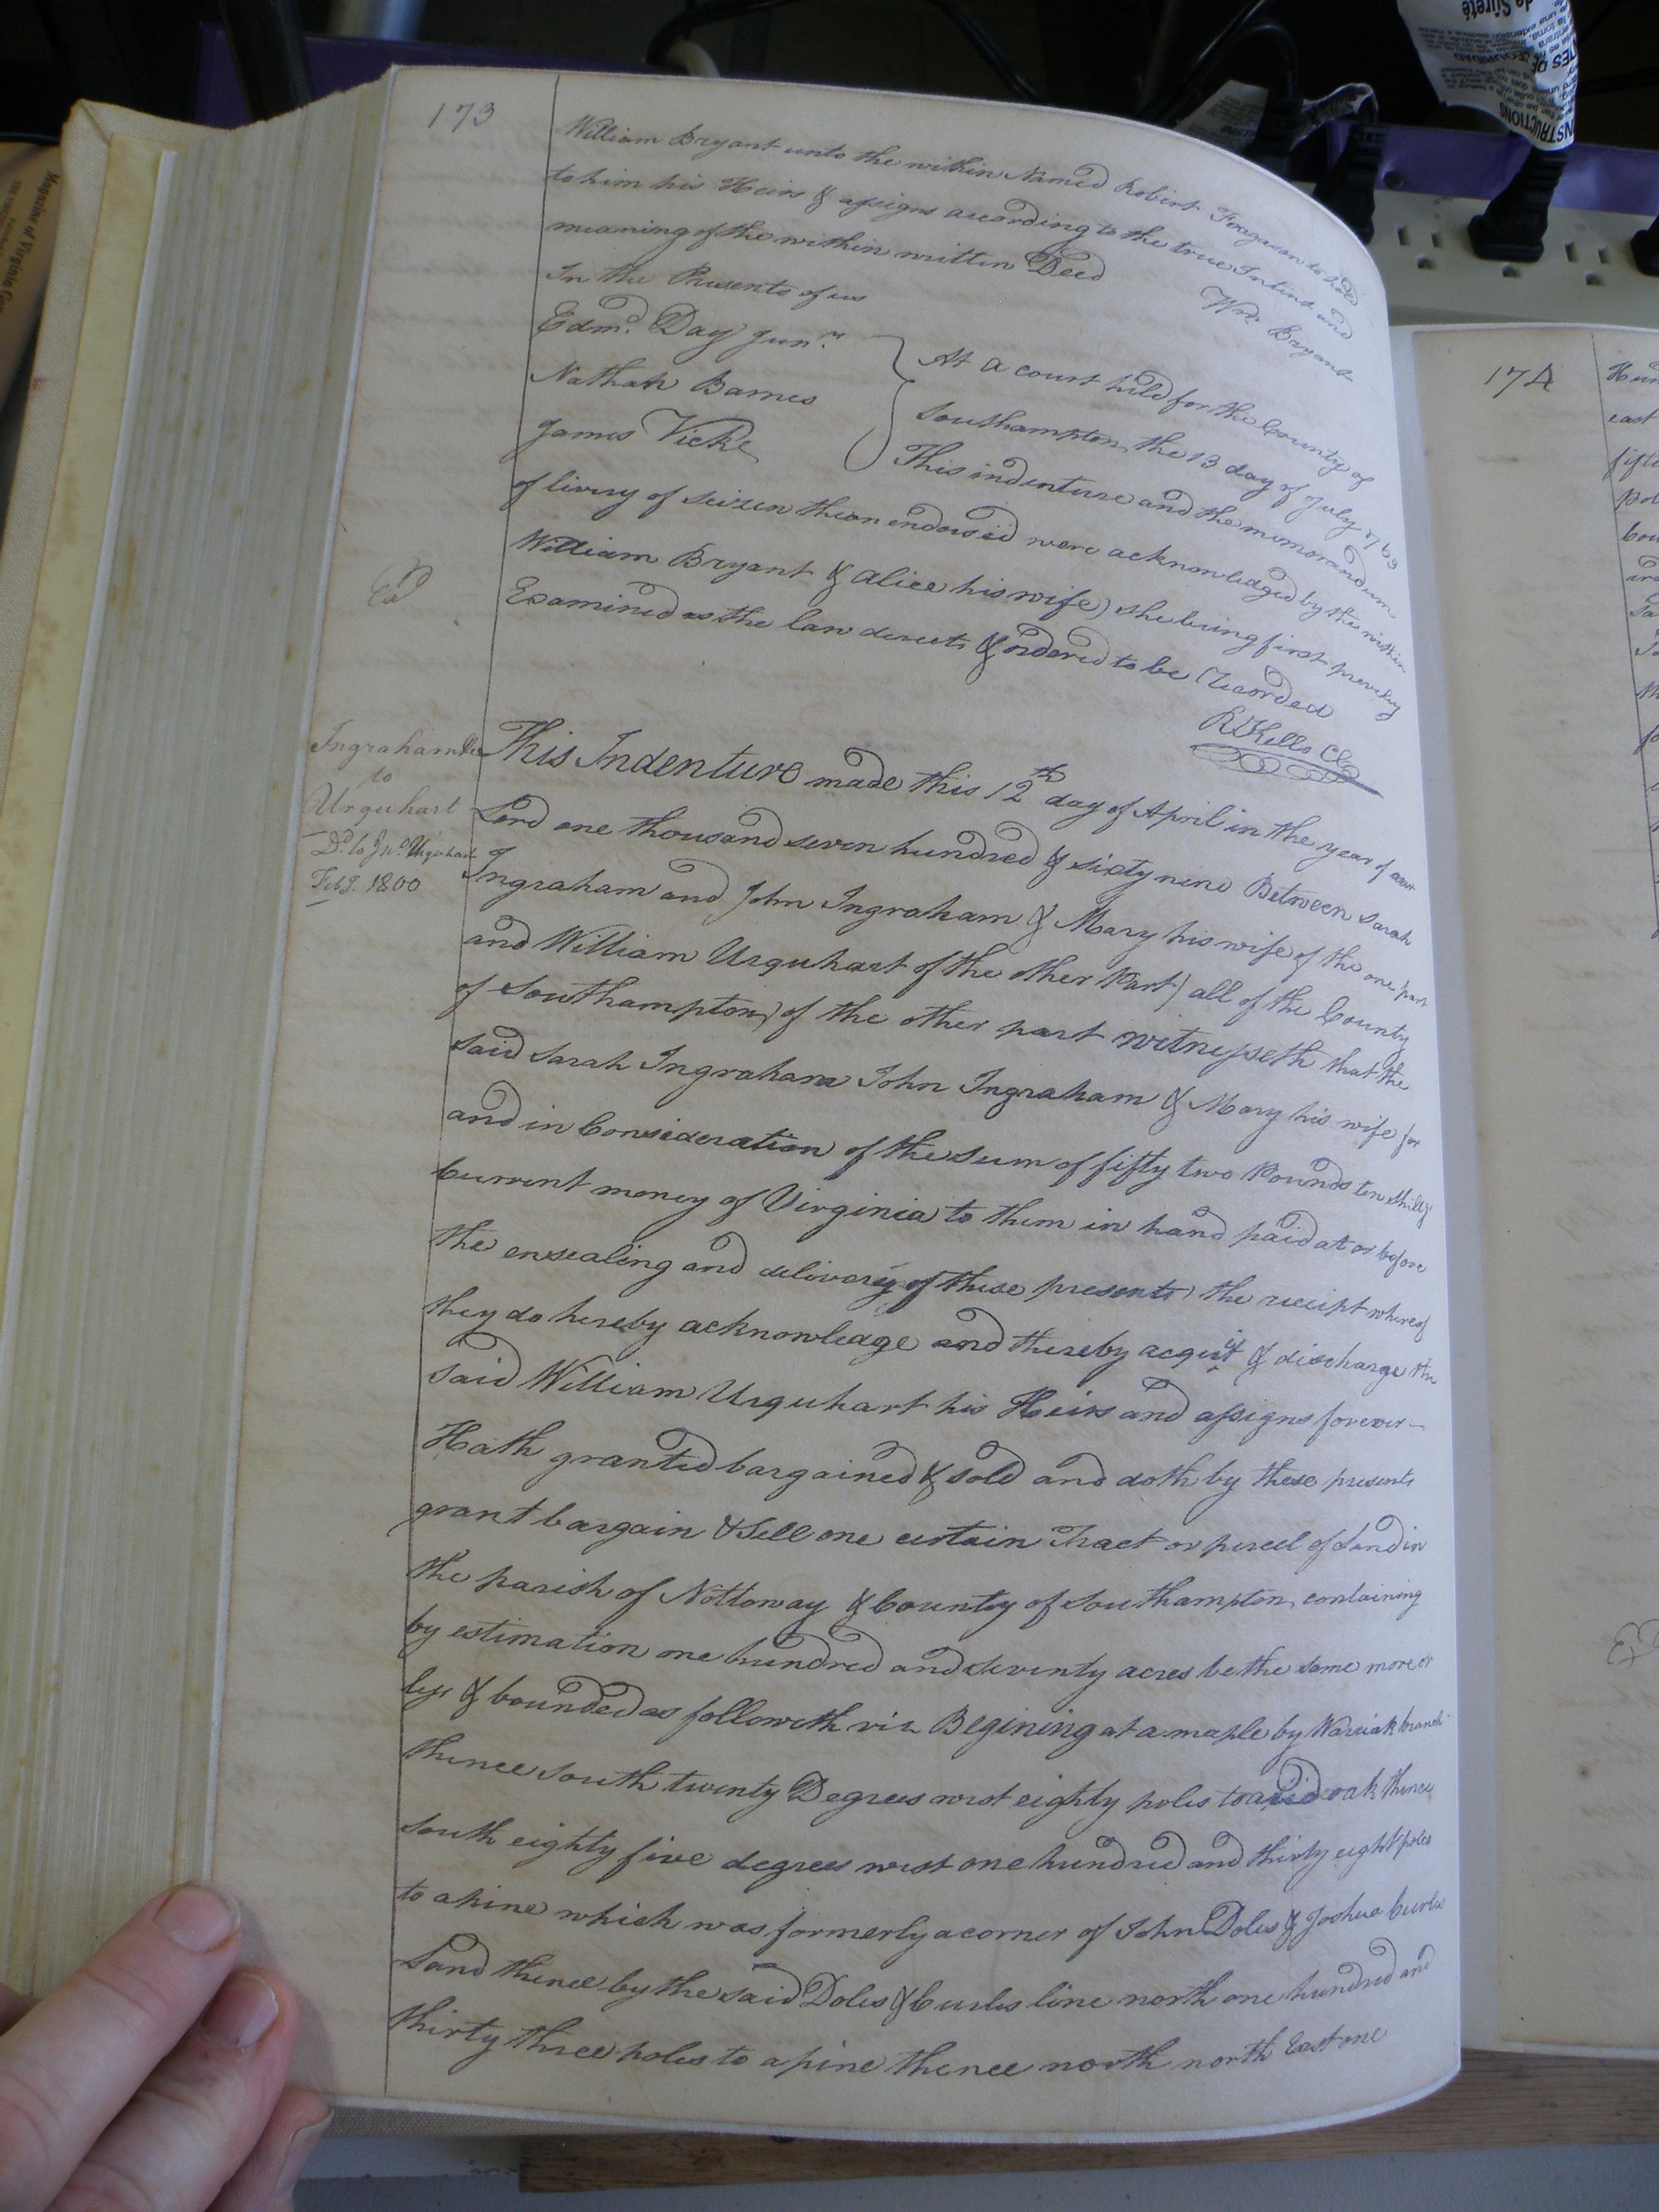 173
William Bryant unto the within Named Robert Fergason to hold
to him his Heirs & assigns according to the true Intent and
meaning of the within written Deed
Wm. Bryant
In the Presents of us
Edmd. Day Junr.
Nathan Barnes
James Vick
At a court held for the County of
Southampton the 13 day of July 1769
This indenture and the memorandum
of livery of seizen theron endorsed were acknowledged by the within
William Bryant & Alice his wife) she being first previly
Examined as the law derects & ordered to be Recorded
Ed
R Kello Cl
Ingraham
to
Urquhart
Dd. to Jno. Urquhart
Feby. 1800
This Indenture made this 12th day of April in the year of our
Lord one thousand seven hundred & sixty nine Between Sarah
Ingraham and John Ingraham & Mary his wife of the one part
and William Urquhart of the other Part) all of the County
of Southampton) of the other part witnesseth that the
said Sarah Ingraham John Ingraham & Mary his wife for
and in Consideration of the sum of fifty two Pounds ten shillgs
Current money of Virginia to them in hand paid at or before
the ensealing and delivery of these presents) the receipt whereof
they do hereby acknowledge and thereby acquit & discharge the
said William Urquhart his Heirs and assigns forever
Hath granted bargained & sold and doth by these presents
grant bargain & Sell one certain Tract or parcel of Land in
the parish of Nottoway & County of Southampton containing
by estimation one hundred and seventy acres be the same more or
less & bounded as followeth viz Begining at a maple by branch
thence south twenty Degrees west eighty poles to a red oak thence
south eighty five degrees west one hundred and thirty eight poles
to a pine which was formerly a corner of John Doles & Joshua Curles
Land thence by the said Doles & Curles line north one hundred and
thirty three poles to a pine thence north north East one
174
east
Magazine of Virginia
de Sûreté
INSTRUCTIONS